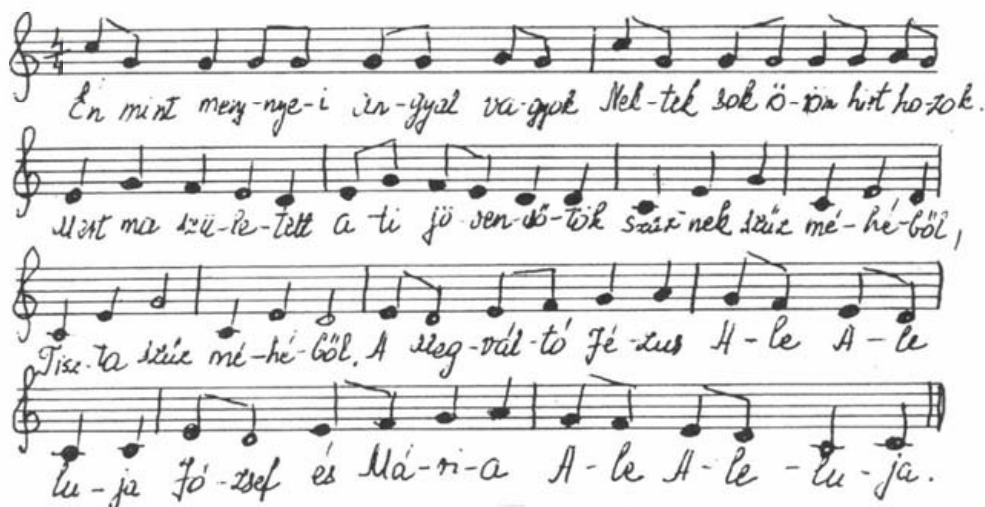 Én mint meny-nye-i an-gyal va-gyok Nek-tek sok ö-röm hirt ho-zok.
Mert ma szü-le-tett a ti jö-ven-dő-tök szűz-nek szűz mé-hé-ből,
Tisz-ta szűz mé-hé-ből. A Meg-vál-tó Jé-zus A-le A-le
lu-ja Jó-zsef és Má-ri-a A-le A-le-lu-ja.